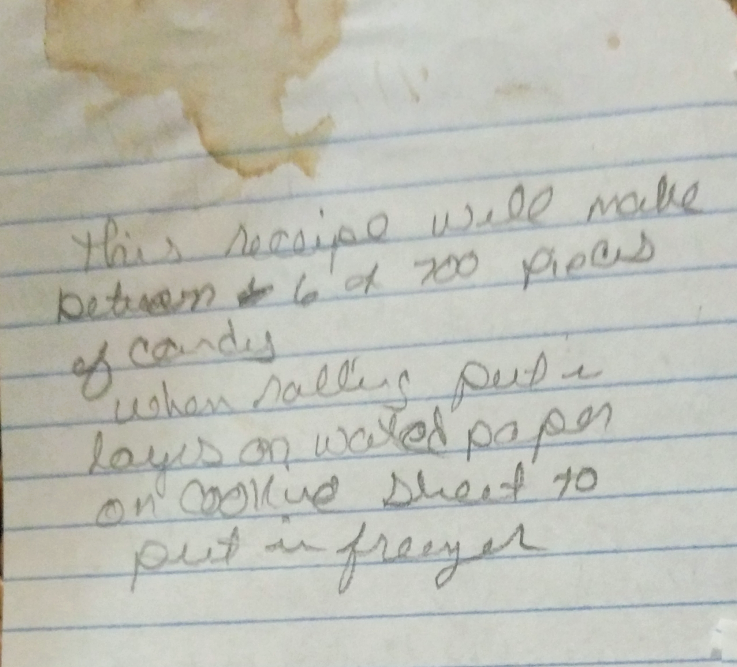 this receipe will make
between 6 & 700 pieces
of candy
when rolling put in
layers on waxed paper
on cookie sheet to
put in freezer